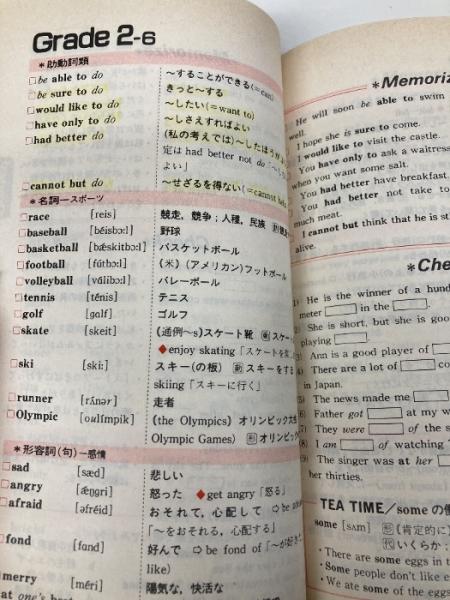 Grade 2-6
*助動詞類
□be able to do ～することができる(=can)
□be sure to do きっと～する
□would like to do ～したい(=want to)
□have only to do ～しさえすればよい
□had better do (私の考えでは)～したほうがよ
定は had better not do「～
よい」
□cannot but do ～せざるを得ない(=cannot help
*名詞―スポーツ
□race [reis] 競走, 競争；人種, 民族
□baseball [béisbɔːl] 野球
□basketball [bǽskitbɔːl] バスケットボール
□football [fútbɔːl] (米)(アメリカン)フットボール
□volleyball [válibɔːl] バレーボール
□tennis [ténis] テニス
□golf [gɑlf] ゴルフ
□skate [skeit] (通例～s)スケート靴 動スケー
◆enjoy skating「スケートを楽
□ski [skiː] スキー(の板) 動スキーをする
skiing「スキーに行く」
□runner [rʌ́nər] 走者
□Olympic [oulímpik] (the Olympics) オリンピック大
Olympic Games) 形オリンピッ
*形容詞(句)―感情
□sad [sæd] 悲しい
□angry [ǽŋgri] 怒った ◆get angry「怒る」
□afraid [əfréid] おそれて, 心配して ⇨be
「～をおそれる, 心配する」
□fond [fɑnd] 好んで ⇨be fond of「～が好き
like)
merry [méri] 陽気な, 快活な
at one's
*Memoriz
He will soon be able to swim
well.
I hope she is sure to come.
I would like to visit the castle.
You have only to ask a waitress
when you want some salt.
You had better have breakfast
You had better not take to
much meat.
I cannot but think that he is st
alive.
*Che
He is the winner of a hund
meter in the .
She is short, but she is goo
playing .
Ann is a good player of
There are a lot of co
in Japan.
The news made me
Father got at my w
They were of the s
I am of watching T
The singer was at her
her thirties.
TEA TIME/some の働
some [sʌm] 形(肯定的に)
代 いくらか
・There are some eggs in t
・Some people don't like e
・We ate some of the eggs